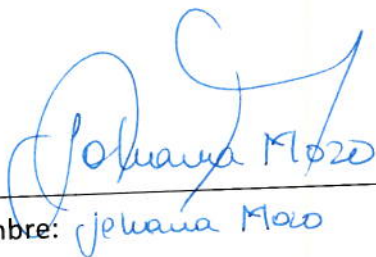 Johanna Mozo
mbre: johana Mozo